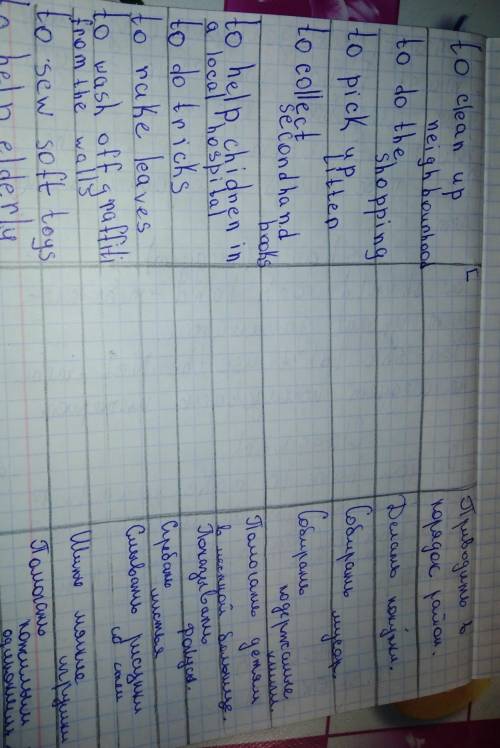 to clean up
neighbourhood
[
Приводить в
порядок район.
to do the
shopping
Делать покупки.
to pick up
litter
Собирать мусор.
to collect
secondhand
books
Собирать
подержаные
книги
to help children in
a local hospital
Помогать детям
в местной больнице.
to do tricks
Показывать
фокусы.
to rake leaves
Сгребать
листья
to wash off graffiti
from the walls
Смывать рисунки
со стен
to sew soft toys
Шить мягкие
игрушки
to help elderly
Помогать
пожилым